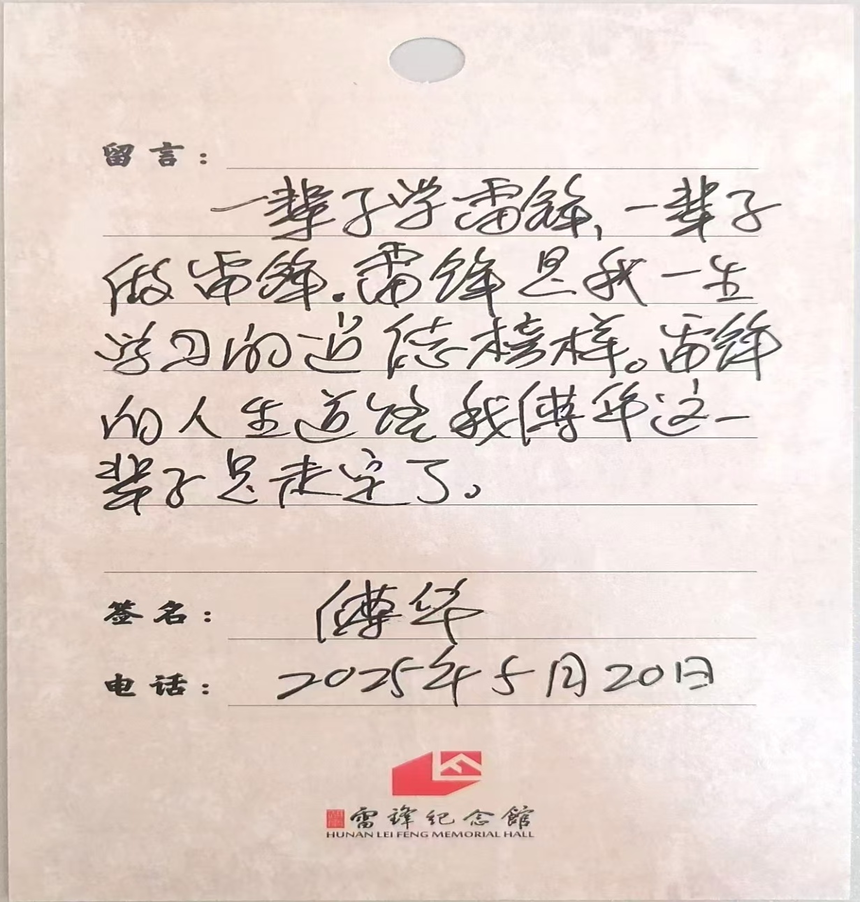 留言：
一辈子学雷锋，一辈子
做雷锋。雷锋是我一生
学习的道德榜样。雷锋
的人生道路我傅华这一
辈子是走定了。
签名：傅华
电话：2025年5月20日
雷锋纪念館
HUNAN LEI FENG MEMORIAL HALL